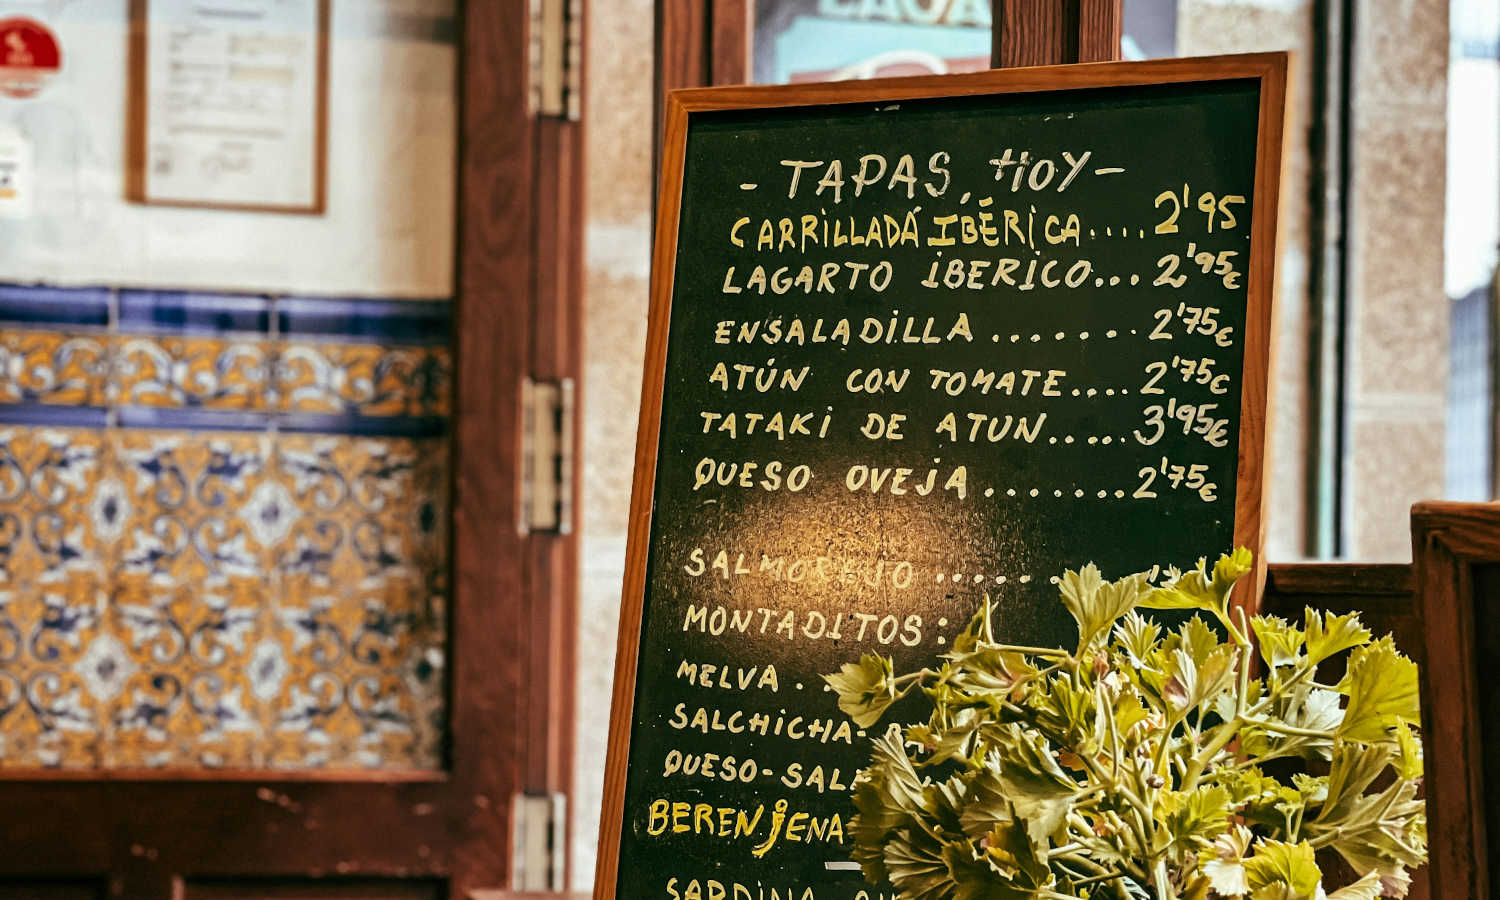 - TAPAS, HOY -
CARRILLADA IBÉRICA.... 2'95
LAGARTO IBERICO... 2'95€
ENSALADILLA ....... 2'75€
ATÚN CON TOMATE.... 2'75€
TATAKI DE ATUN..... 3'95€
QUESO OVEJA ....... 2'75€
SALMOREJO ......
MONTADITOS:
MELVA ..
SALCHICHA-
QUESO-
BERENJENA
SARDINA